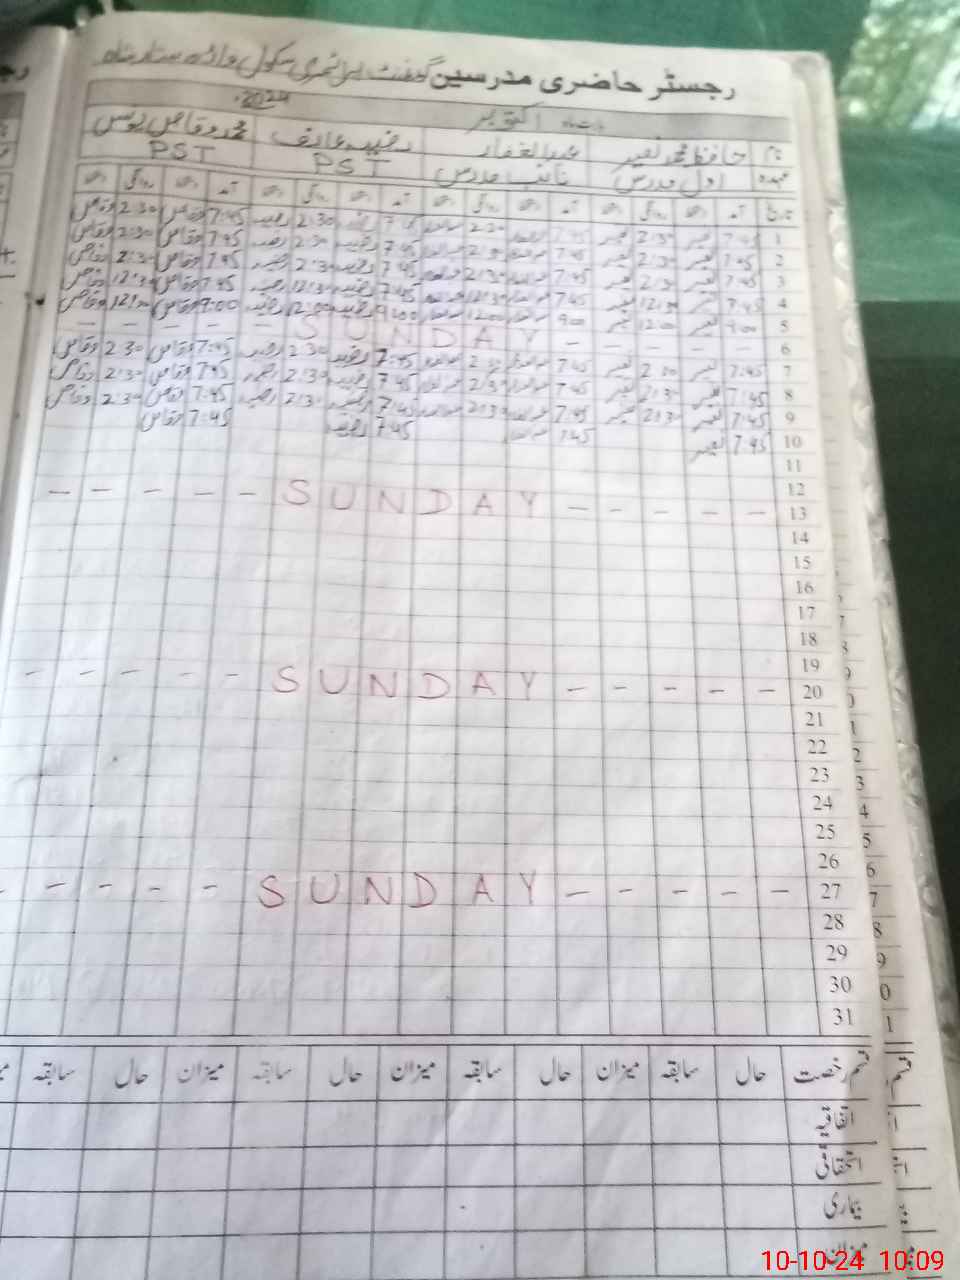 رجسٹر حاضری مدرسین گورنمنٹ پرائمری سکول
بابت ماہ اکتوبر 2024
نام حافظ محمد نصیر عبدالغفار رضیہ عارف محمد وقاص یونس
عہدہ اول مدرس نائب مدرس PST PST
تاریخ آمد دستخط روانگی دستخط آمد دستخط روانگی دستخط آمد دستخط روانگی دستخط آمد دستخط روانگی دستخط
1 7:45 نصیر 2:30 نصیر 7:45 عبدالغفار 2:30 عبدالغفار 7:45 رضیہ 2:30 رضیہ 7:45 وقاص 2:30 وقاص
2 7:45 نصیر 2:30 نصیر 7:45 عبدالغفار 2:30 عبدالغفار 7:45 رضیہ 2:30 رضیہ 7:45 وقاص 2:30 وقاص
3 7:45 نصیر 2:30 نصیر 7:45 عبدالغفار 2:30 عبدالغفار 7:45 رضیہ 2:30 رضیہ 7:45 وقاص 2:30 وقاص
4 7:45 نصیر 12:30 نصیر 7:45 عبدالغفار 12:30 عبدالغفار 7:45 رضیہ 12:30 رضیہ 7:45 وقاص 12:30 وقاص
5 9:00 نصیر 12:00 نصیر 9:00 عبدالغفار 12:00 عبدالغفار 9:00 رضیہ 12:00 رضیہ 9:00 وقاص 12:00 وقاص
6 - - - - - SUNDAY - - - - -
7 7:45 نصیر 2:30 نصیر 7:45 عبدالغفار 2:30 عبدالغفار 7:45 رضیہ 2:30 رضیہ 7:45 وقاص 2:30 وقاص
8 7:45 نصیر 2:30 نصیر 7:45 عبدالغفار 2:30 عبدالغفار 7:45 رضیہ 2:30 رضیہ 7:45 وقاص 2:30 وقاص
9 7:45 نصیر 2:30 نصیر 7:45 عبدالغفار 2:30 عبدالغفار 7:45 رضیہ 2:30 رضیہ 7:45 وقاص 2:30 وقاص
10 7:45 نصیر 7:45 عبدالغفار 7:45 رضیہ 7:45 وقاص
11
12
13 - - - - - SUNDAY - - - - -
14
15
16
17
18
19
20 - - - - - SUNDAY - - - - -
21
22
23
24
25
26
27 - - - - - SUNDAY - - - - -
28
29
30
31
قسم رخصت حال سابقہ میزان حال سابقہ میزان حال سابقہ میزان حال سابقہ
اتفاقیہ
استحقاقی
بیماری
میزان
10-10-24 10:09